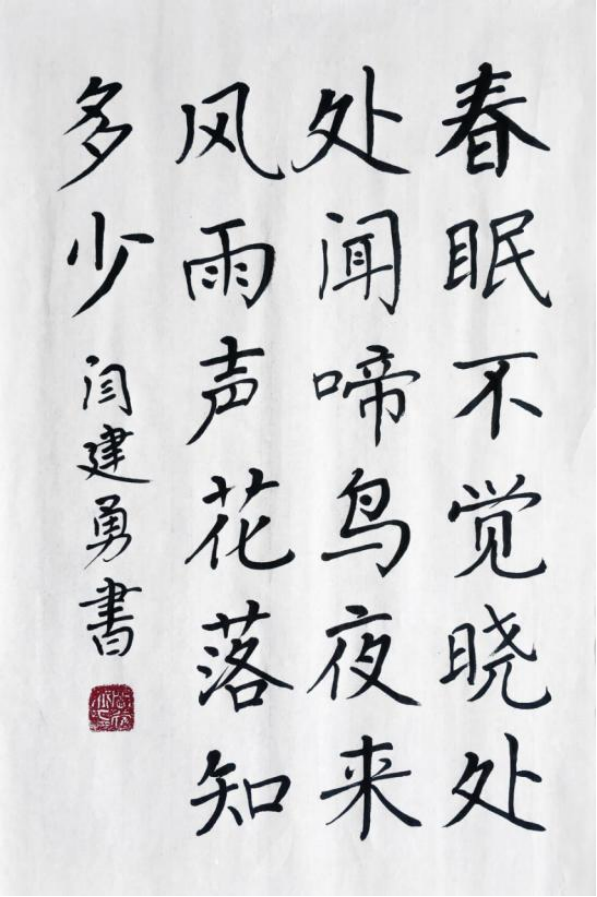 春眠不觉晓处
处闻啼鸟夜来
风雨声花落知
多少 闫建勇書